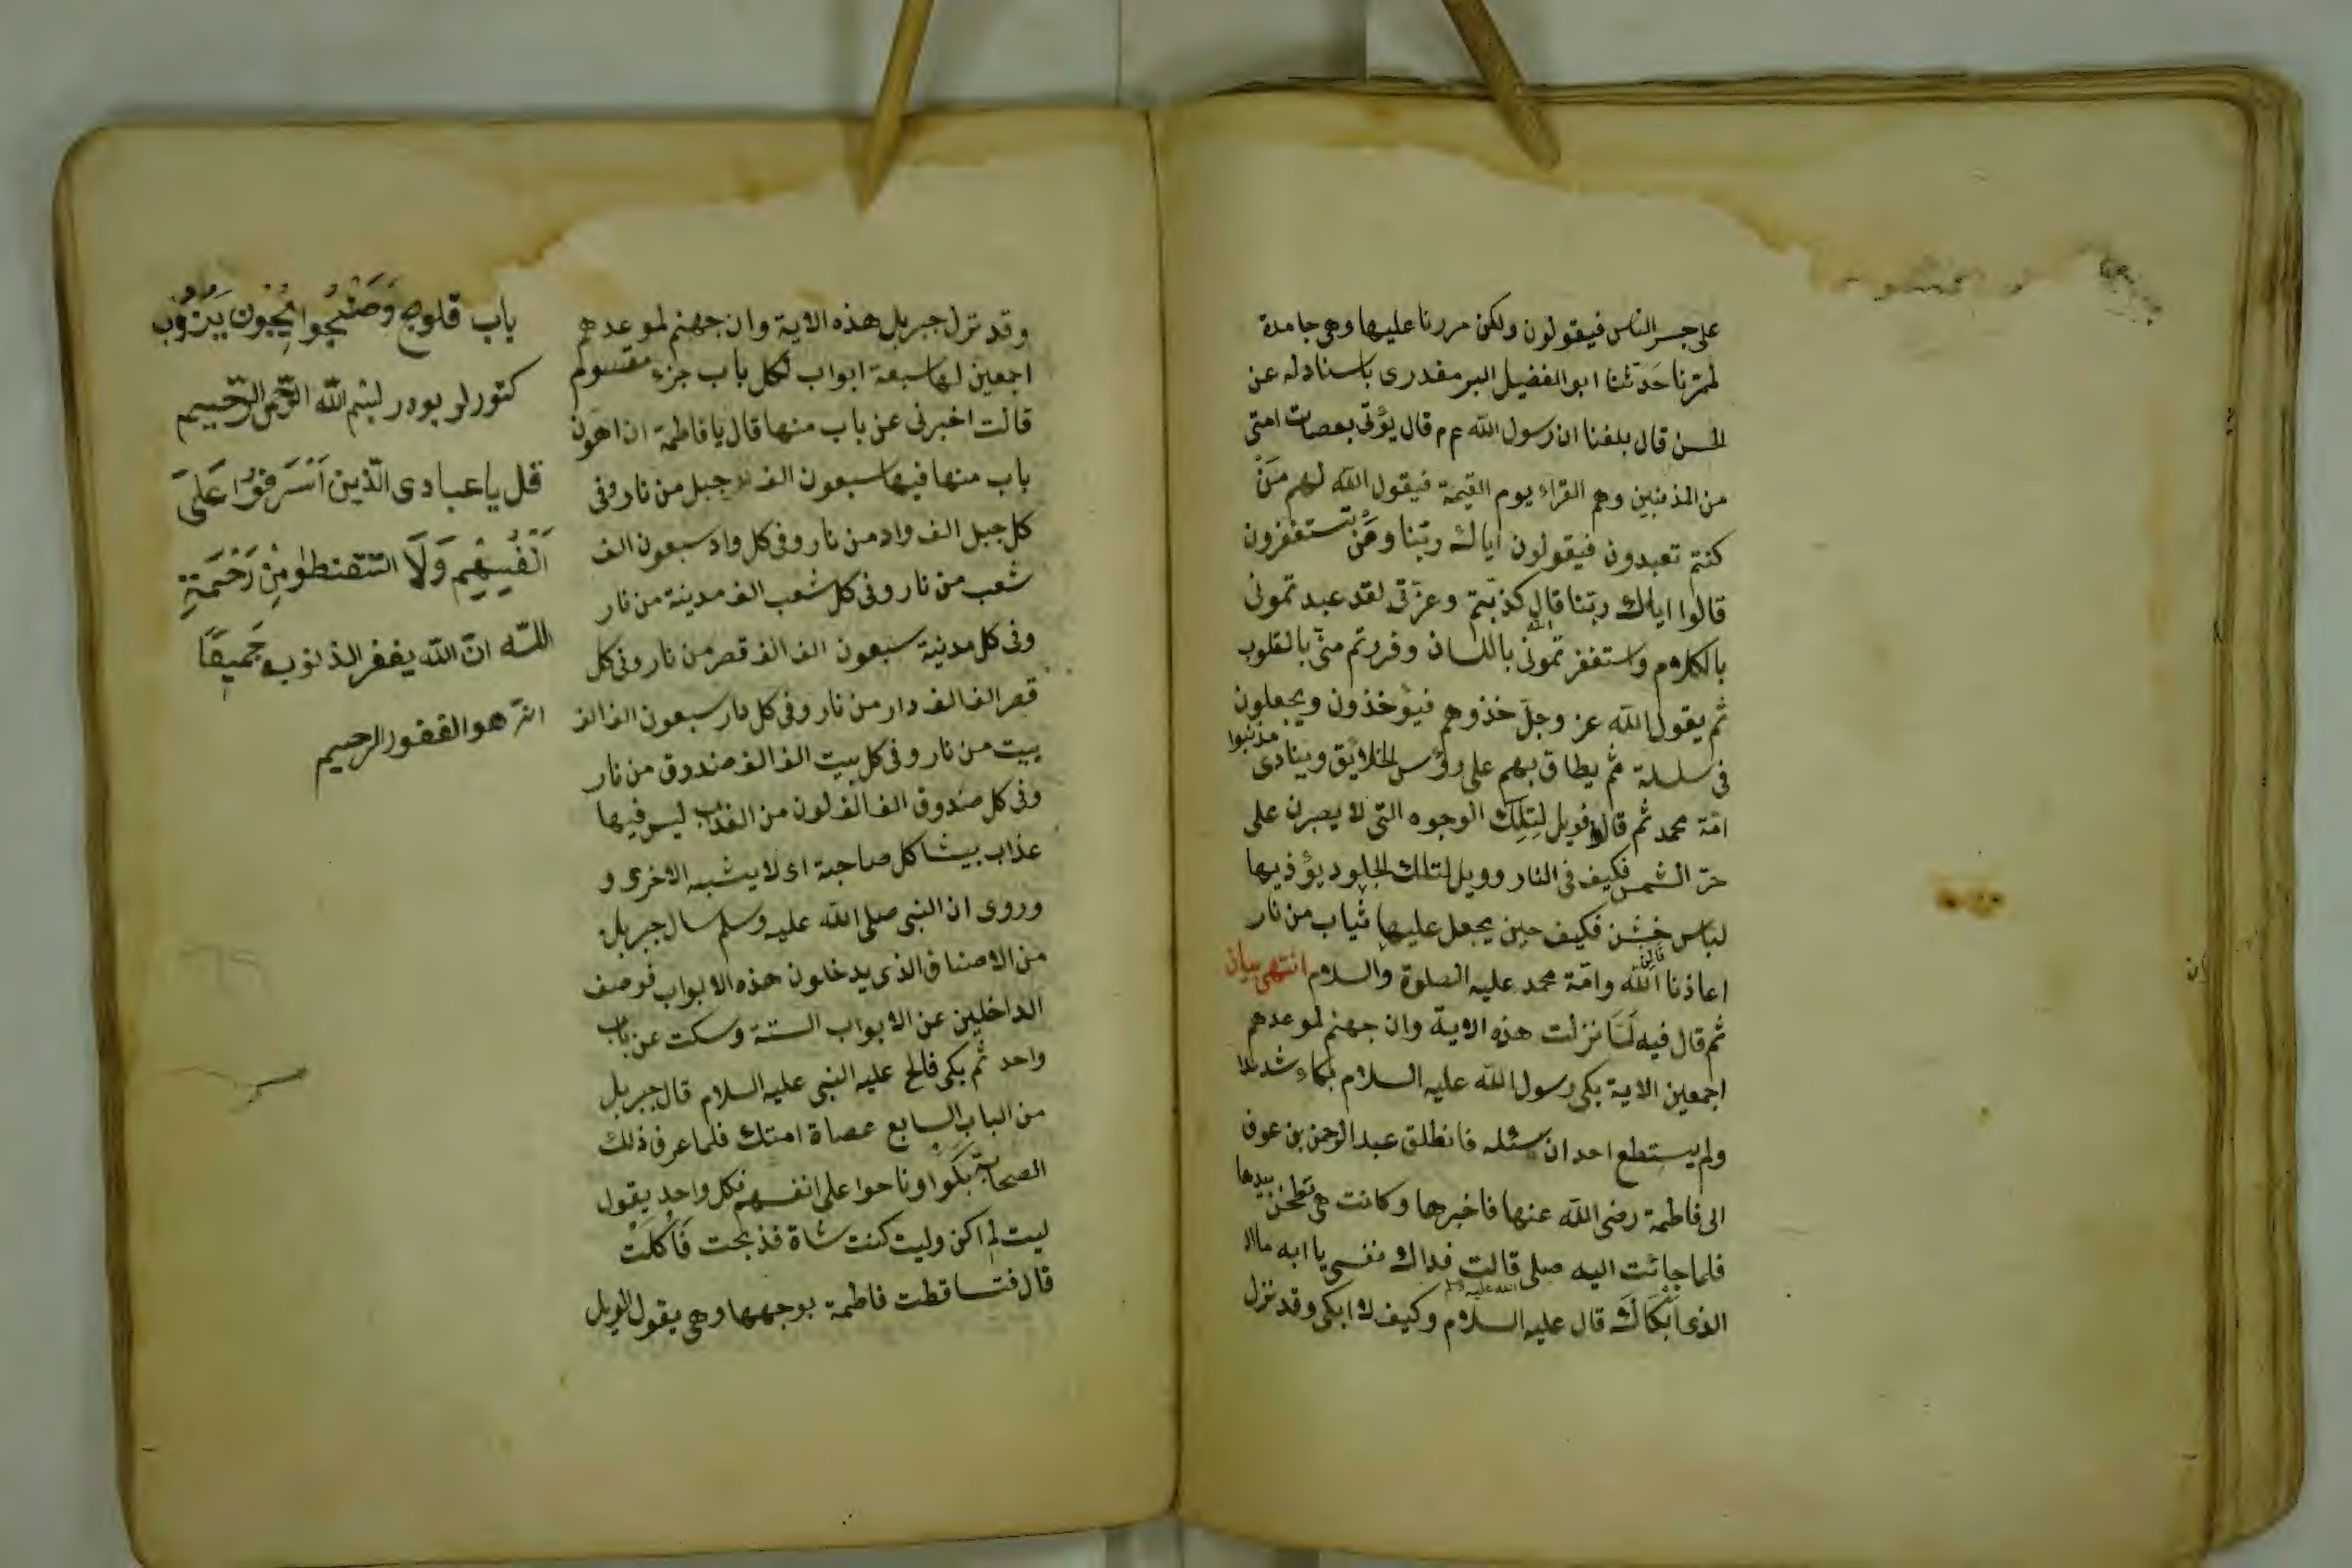 على جسر الناس فيقولون ولكن مررنا عليها وهى جامدة
لمرّنا حَدّثنا ابو الفضيل البرمقدرى باسناد له عن
الحسن قال بلغنا ان رسول الله عم قال يؤتى بعصات امتى
من المذنبين وهم القراء يوم القيمة فيقول الله لهم مَنْ
كنتم تعبدون فيقولون اياك ربّنا ومَن تستغفرون
قالوا اياك ربّنا قال الله كذبتم وعزّتى لقد عبدتمونى
بالكلام واستغفرتمونى باللسان وفررتم منّى بالقلوب
ثم يقول الله عز وجلّ خذوهم فيؤخذون ويجعلون
فى سلسلة ثم يطاق بهم على رؤس الخلايق وينادى مذنبوا
امّة محمد ثم قال فويل لتِلك الوجوه التى لا يصبرن على
حرّ الشمس فكيف فى النار وويل لتلك الجلود يؤذيها
لباس خشن فكيف حين يجعل عليها ثياب من نار
اعاذنا الله وامّة محمد عليه الصلوة والسلام انتهى بيان
ثم قال فيه لَمَّا نزلت هذه الاية وان جهنم لموعدهم
اجمعين الاية بكى رسول الله عليه السلام بكاء شديدا
ولم يستطع احد ان سئله فانطلق عبد الرحمن بن عوف
الى فاطمة رضى الله عنها فاخبرها وكانت هى تطحن بيدها
فلما جائت اليه صلى الله عليه وسلم قالت فداك نفسى يا ابه ما
الذى اَبْكَاكَ قال عليه السلام وكيف لا ابكى وقد نزل
وقد نزل جبريل هذه الاية وان جهنم لموعدهم
اجمعين لها سبعة ابواب لكل باب جزء مقسوم
قالت اخبرنى عن باب منها قال يا فاطمة ان اهون
باب منها فيها سبعون الف جبل من نار وفى
كل جبل الف واد من نار وفى كل واد سبعون الف
شعب من نار وفى كل شعب الف مدينة من نار
وفى كل مدينة سبعون الف الف قصر من نار وفى كل
قصر الف الف دار من نار وفى كل دار سبعون الف الف
بيت من نار وفى كل بيت الف الف صندوق من نار
وفى كل صندوق الف الف لون من العذاب ليس فيها
عذاب بيشاكل صاحبة اى لا يشبه الاخرى و
وروى ان النبى صلى الله عليه وسلم سال جبريل
من الاصناف الذى يدخلون هذه الابواب فوصف
الداخلين عن الابواب الستة وسكت عن باب
واحد ثم بكى فالح عليه النبى عليه السلام قال جبريل
من الباب السابع عصاة امتك فلما عرف ذلك
الصحابة بَكَوا وناحوا على انفسهم فكل واحد يقول
ليت لم اكن وليت كنت شاة فذبحت فَاُكلَتْ
قال فتساقطت فاطمة بوجهها وهى يقول الويل
باب قلوج
كتورلر بودر لبسم الله الرّحمن الرّحيم
قل يا عبادى الّذين اَسْرَفوُا عَلىَ
اَنْفُسِهِمْ وَلَا التتقنطوا مِنْ رَحْمَةِ
اللّه انّ الله يغفر الذنوب جَميعًا
انّه هو الغفور الرحيم